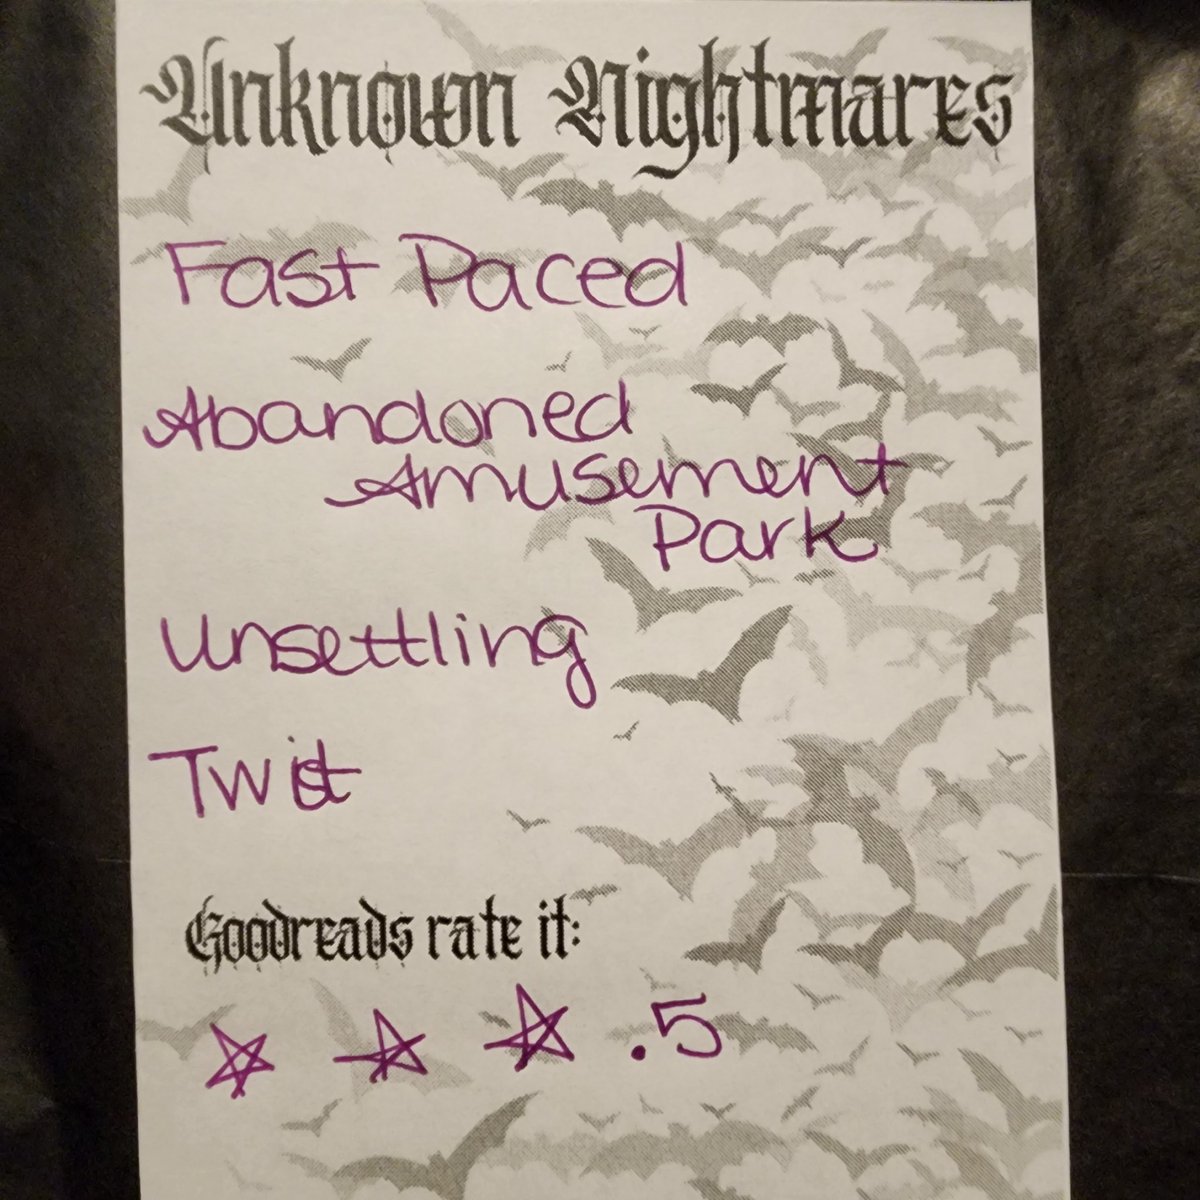 Unknown Nightmares
Fast Paced
Abandoned
Amusement
Park
Unsettling
Twist
Goodreads rate it:
☆ ☆ ☆ .5